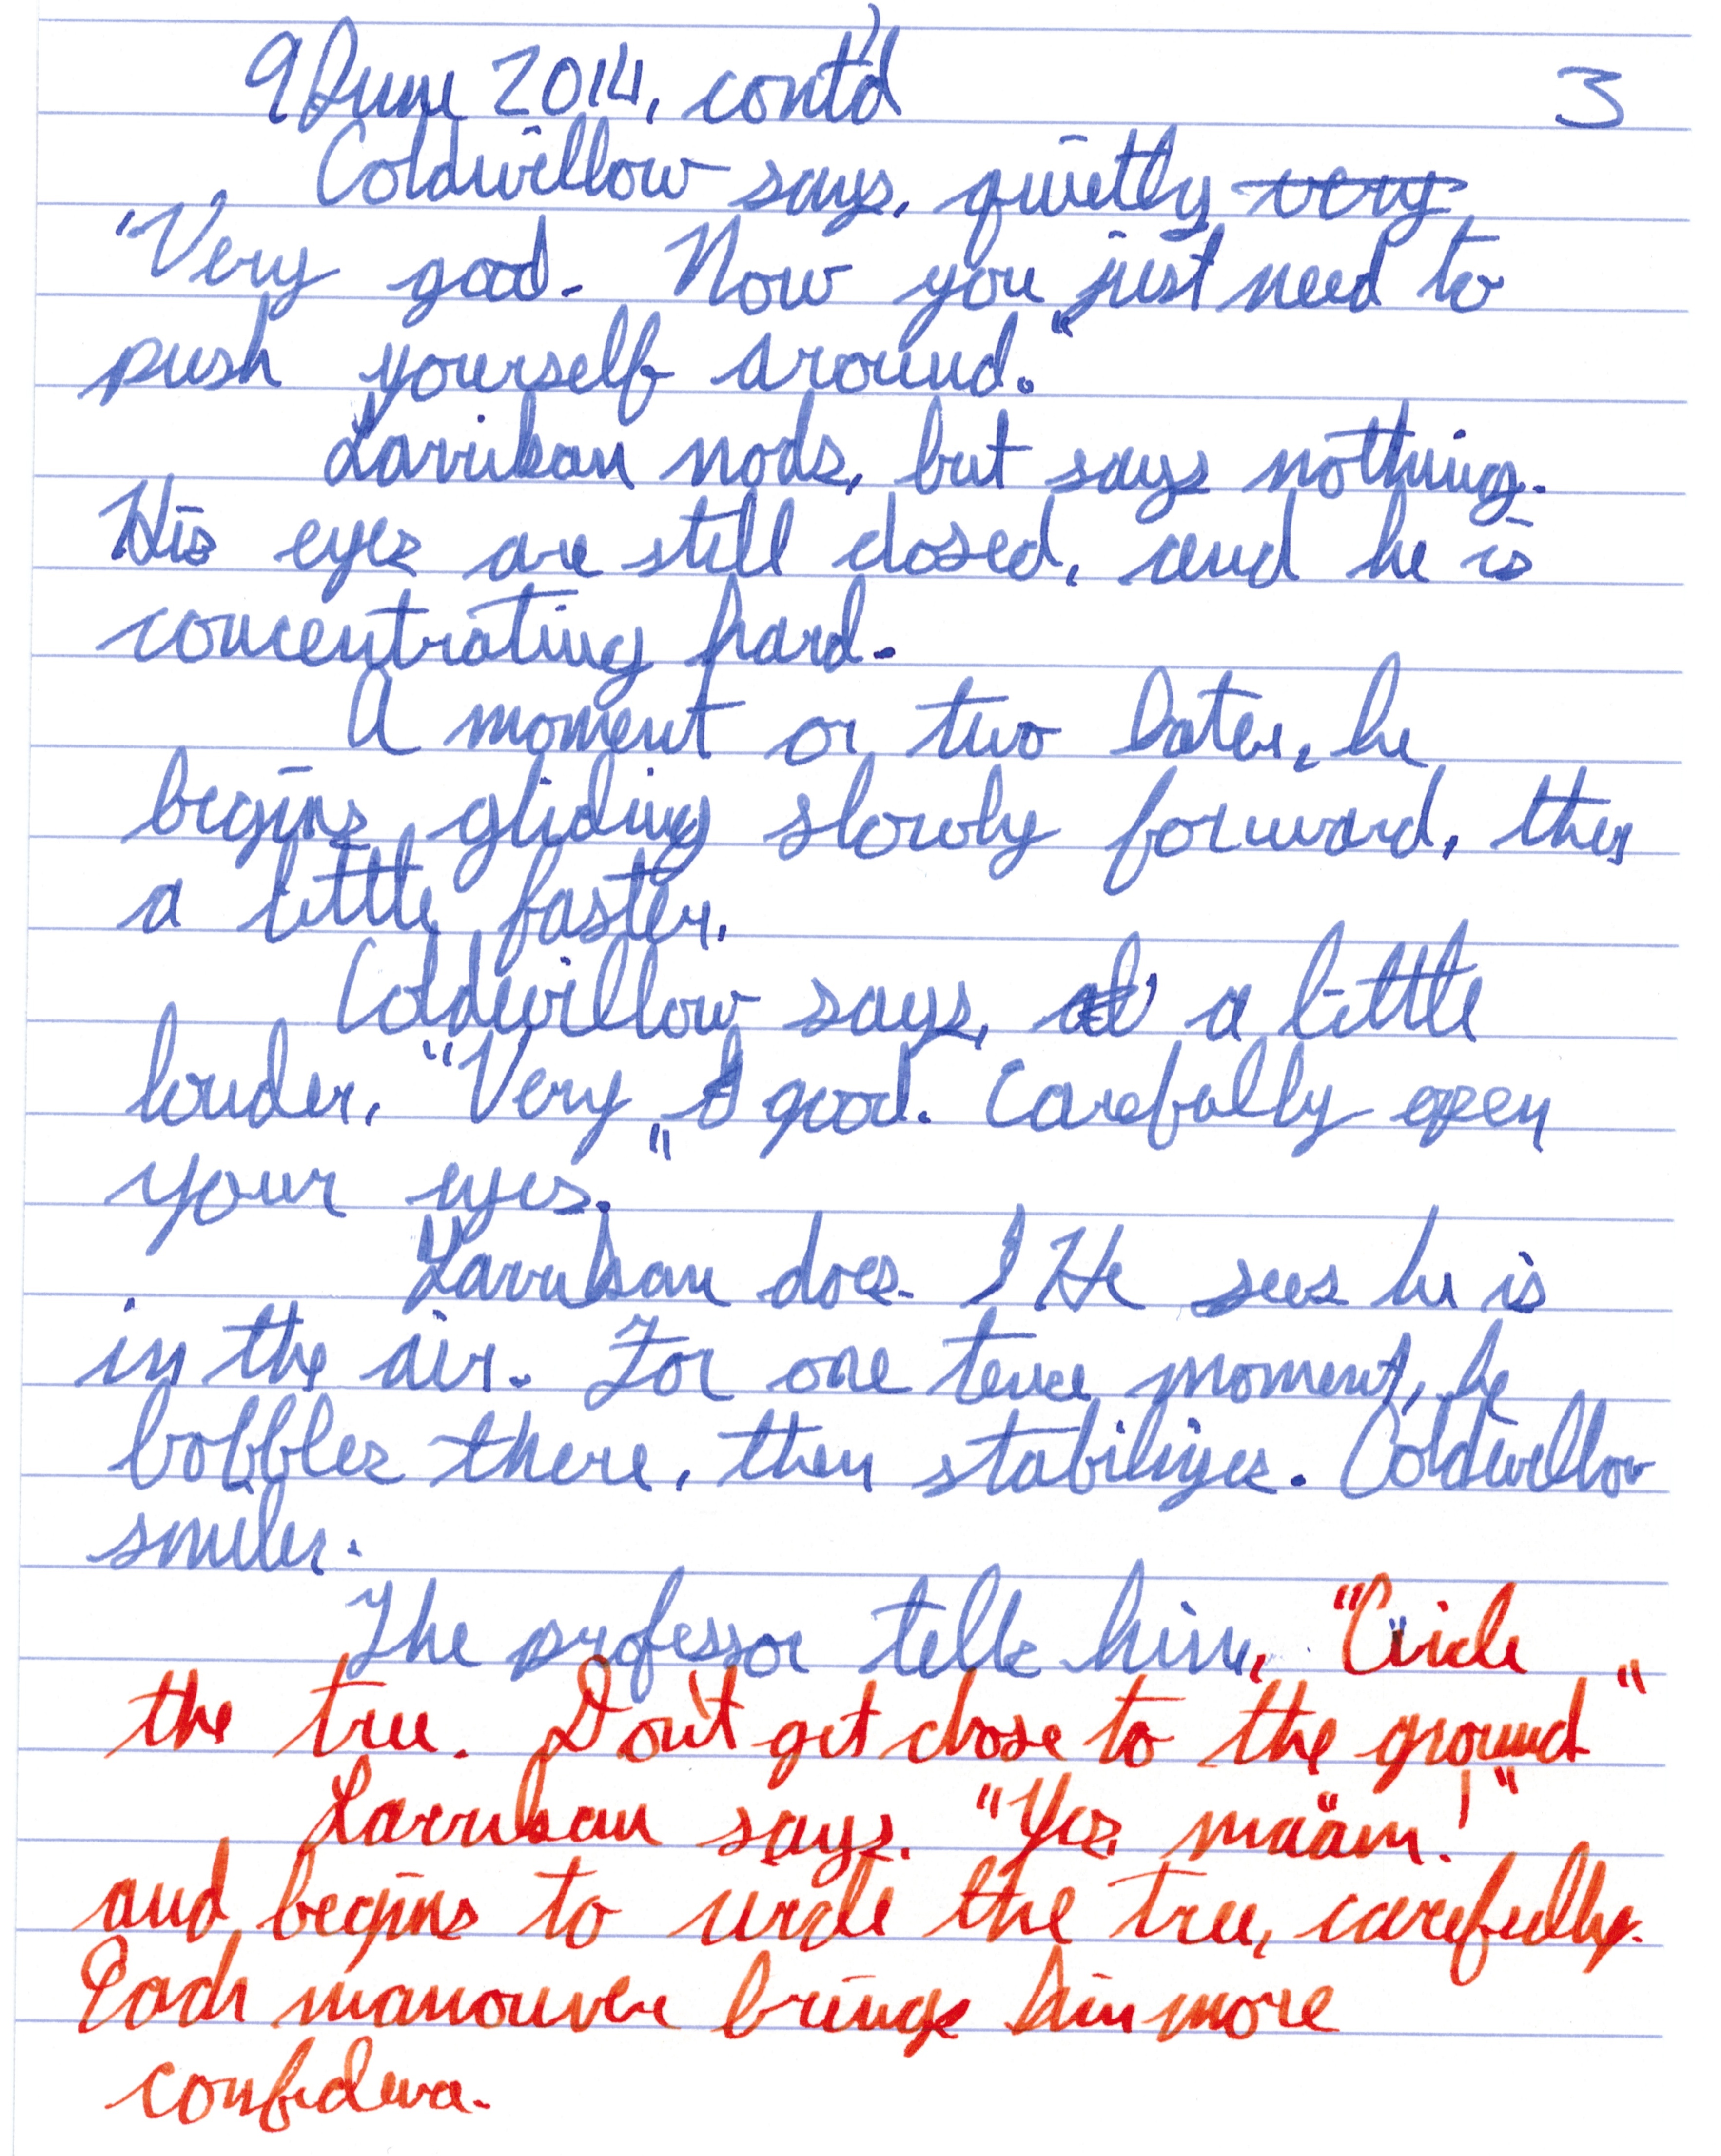 9 June 2014, cont'd 3
Coldwillow says, quietly very
"Very good. Now you just need to
push yourself around."
Larrikan nods, but says nothing.
His eyes are still closed, and he is
concentrating hard.
A moment or two later, he
begins gliding slowly forward, then
a little faster.
Coldwillow says, at a little
louder, "Very good. Carefully open
your eyes."
Larrikan does. He sees he is
in the air. For one tense moment, he
bobbles there, then stabilizes. Coldwillow
smiles.
The professor tells him, "Circle
the tree. Don't get close to the ground"
Larrikan says, "Yes, ma'am!"
and begins to circle the tree, carefully.
Each manouver brings him more
confidence.